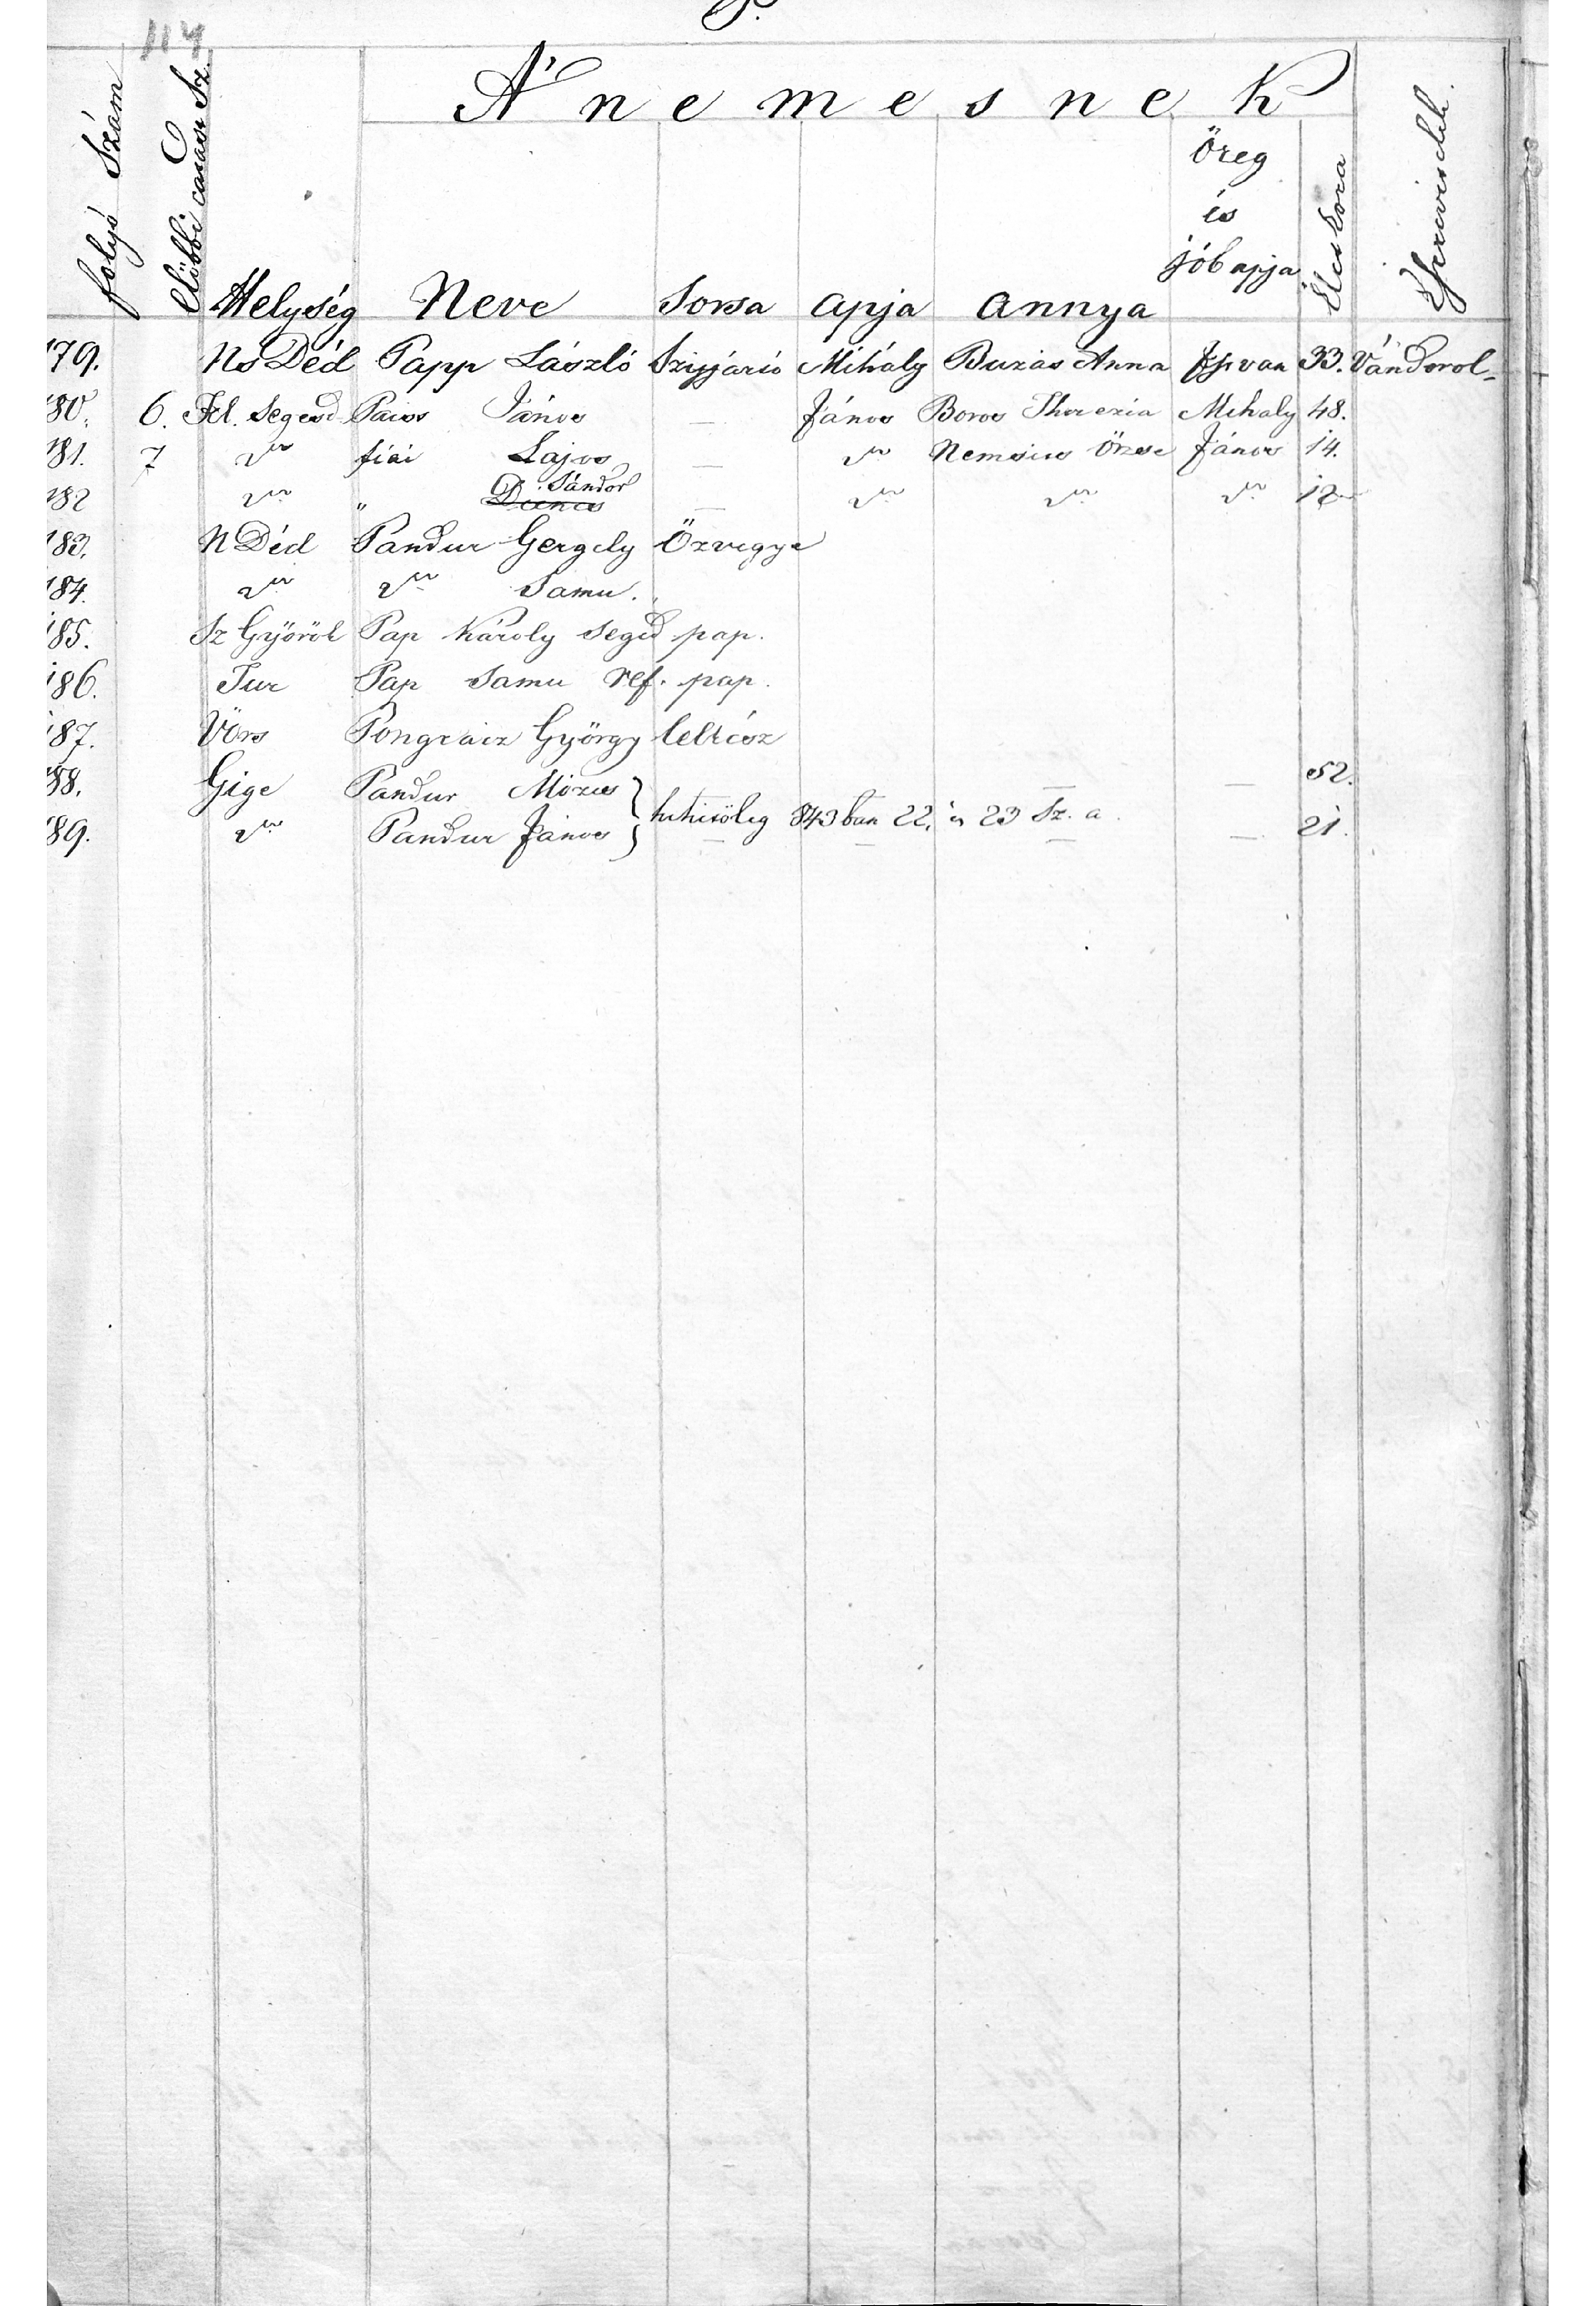 P.
114
A' nemesnek
folyó Szám
Előbbi Sz.
Helység Neve Sorsa Apja Annya Öreg és jóbapja Élet kora Észrevétel.
179. Ns Déd Papp László Szíjjártó Mihály Buzás Anna Istvan 33. Vándorol
180. 6. Fel. Segesd János — János Boros Therezia Mihaly 48.
181. 7 " fiai Lajos — " Örzse János 14.
182 " " Sándor Dienes — " " " 12
183. N Déd Pandur Gergely Özvegye
184. " " Samu.
185. Sz Györök Pap Károly Segéd pap.
186. Tur Pap Samu ref. pap.
187. Vörs Pongrácz György
188. Gige Pandur Mózes — 52.
hitelesőleg 843ban 22. és 23 Sz. a.
189. " Pandur János — — — — 21.